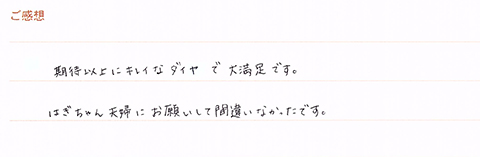 ご感想
期待以上にキレイなダイヤで大満足です。
はぎちゃん夫婦にお願いして間違いなかったです。